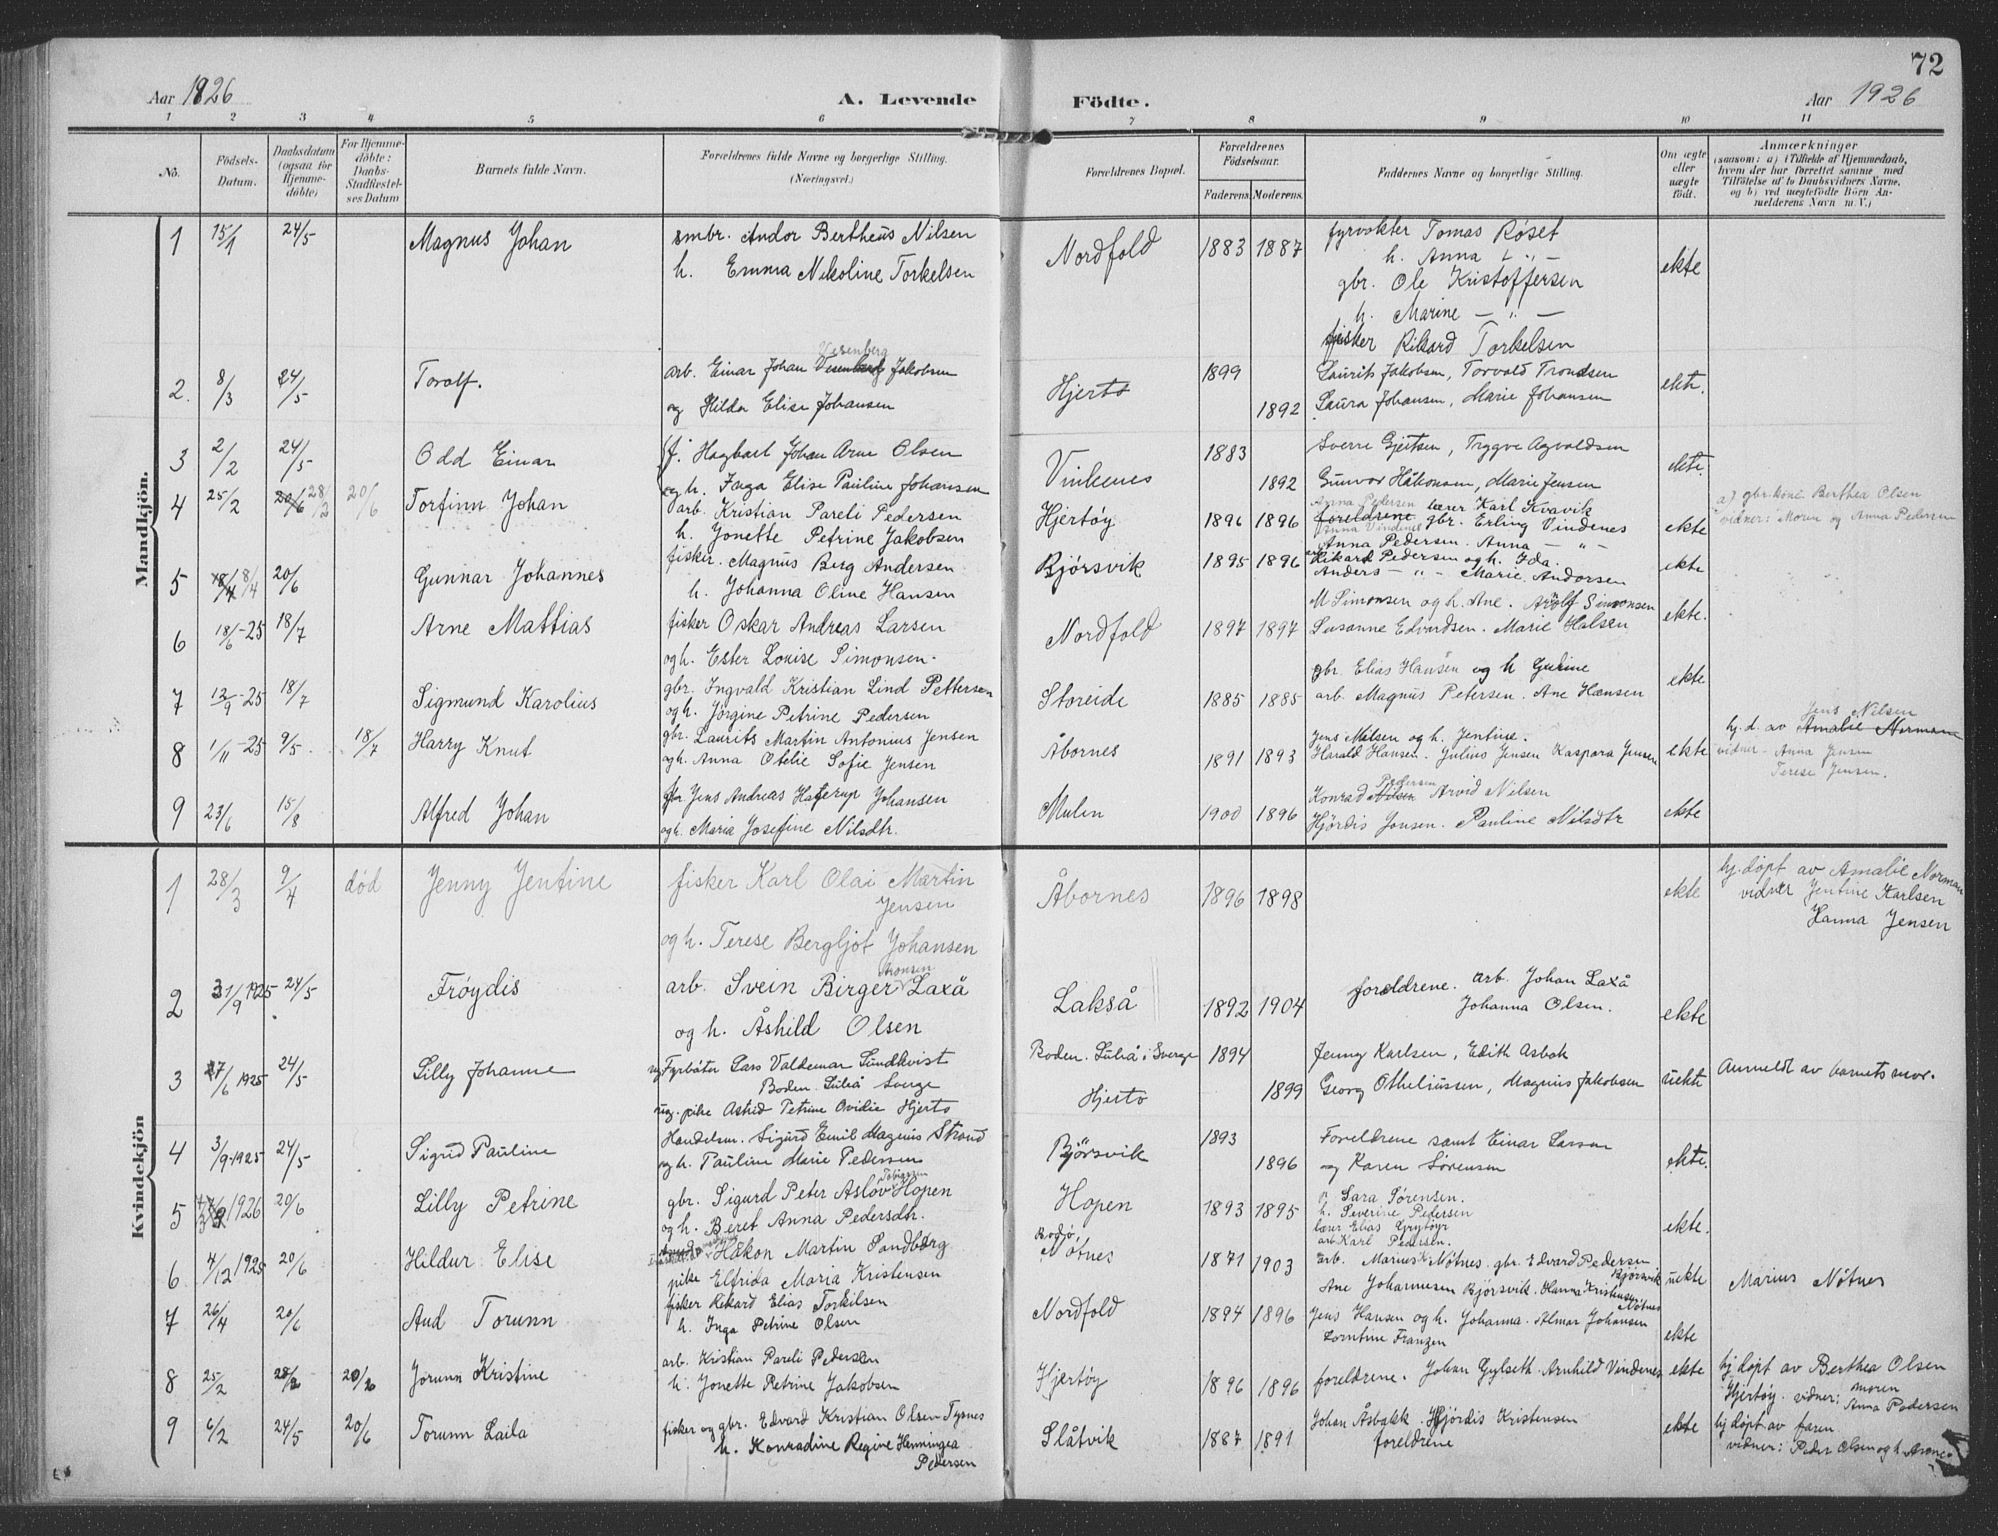 72
Aar 1926 A. Levende Födte. Aar 1926
1 2 3 4 5 6 7 8 9 10 11
No. Födsels-Datum. Daabsdatum (ogsaa for Hjemmedöbte) For Hjemmedöbte: Daabs-Stadfæstelses Datum Barnets fulde Navn. Forældrenes fulde Navne og borgerlige Stilling. (Næringsvei.) Forældrenes Bopæl. Forældrenes Födselsaar. Faderens Moderens. Faddernes Navne og borgerlige Stilling. Om ægte eller uægte födt. Anmærkninger (saasom: a) i Tilfælde af Hjemmedaab, hvem der har forrettet samme med Tilföielse af to Daabsvidners Navne, og b) ved uægtefödte Börn Anmelderens Navn m. V.)
Mandkjön.
1 15/1 24/5 Magnus Johan smbr. Andor Bertheus Nilsen Nordfold 1883 1887 fyrvokter Tomas Røset ekte
h. Emma Nikoline Torkelsen h. Anna — " —
gbr. Ole Kristoffersen
h. Marine — " —
fisker Rikard Torkelsen
2. 8/3 24/5 Torolf. arb. Einar Johan Vesenberg Jakobsen Hjertø 1899 Laurits Jakobsen, Torvald Trondsen ekte.
og Hilda Elise Johansen 1892 Laura Johansen, Marie Johansen
3 2/2 24/5 Odd Einar f. Hagbart Johan Arne Olsen Vinkenes 1883 Sverre Gjertsen, Trygve Agvaldsen ekte.
og h. Inga Elise Pauline Johansen 1892 Gunvor Håkonsen, Marie Jensen
4 25/2 20/6 28/2 20/6 Torfinn Johan arb. Kristian Pareli Pedersen Hjertøy 1896 1896 Anna Pedersen lærer Karl Kvavik ekte a) gbr.kone Berthea Olsen
h. Jonette Petrine Jakobsen foreldrene gbr. Erling Vindenes vidner: Moren og Anna Pedersen
Anna Pedersen. Anna — " —
5 18/4 8/4 20/6 Gunnar Johannes fisker. Magnus Berg Andersen Bjørsvik 1895 1896 Rikard Pedersen og h. Ida. ekte
h. Johanna Oline Hansen Anders — " — Marie Andorsen
6 18/6-25 18/7 Arne Mattias fisker Oskar Andreas Larsen Nordfold 1897 1897 M Simonsen og h. Ane. Arnolf Simonsen ekte.
og h. Ester Louise Simonsen. Susanne Edvardsen. Marie Halsen
7 12/9-25 18/7 Sigmund Karolius gbr. Ingvald Kristian Lind Pettersen Storeide 1885 1885 gbr. Elias Hansen og h Gurine ekte
og h. Jørgine Petrine Pedersen arb. Magnus Petersen. Ane Hansen
8 1/11-25 9/5 18/7 Harry Knut gbr. Laurits Martin Antonius Jensen Åbornes 1891 1893 Jens Nilsen og h. Jentine. ekte hj. d. av Jens Nilsen Amalie Norman
og h. Anna Otelie Sofie Jensen Harald Hansen. Julius Jensen Kaspara Jensen vidner - Anna Jensen
Terese Jensen.
9 23/6 15/8 Alfred Johan gbr. Jens Andreas Haterup Johansen Mulen 1900 1896 Konrad Nilsen Pedersen Arvid Nilsen ekte
og h. Maria Josefine Nilsdtr. Hjördis Jensen. Pauline Nilsdtr
Kvindekjön
1 28/3 9/4 død Jenny Jentine fisker Karl Olai Martin Jensen Åbornes 1896 1898 ekte hj. døpt av Amalie Norman
og h. Terese Bergljot Johansen vidner Jentine Karlsen
Hanna Jensen
2 31/9 1925 24/5 Frøydis arb. Svein Birger Aronsen Laxå Lakså 1892 1904 foreldrene. arb. Johan Laxå ekte
og h. Åshild Olsen Johanna Olsen.
3 27/6 1925 24/5 Lilly Johanne ug Fyrbøter Lars Valdemar Lundkvist Boden. Luleå i Sverge 1894 Jenny Karlsen, Edith Asbak uekte Anmeldt av barnets mor.
Boden. Luleå Sverge Georg Otheliussen, Magnus Jakobsen
ug. pike Astrid Petrine Ovidie Hjertø Hjertø 1899
4 3/9 1925 24/5 Sigrid Pauline Handelsm. Sigurd Emil Magnus Strand Bjørsvik 1893 Foreldrene samt Einar Larsen ekte.
og h. Pauline Marie Pedersen 1896 og Karen Sørensen
5 1926 20/6 Lilly Petrine gbr. Sigurd Peter Asløv Tobiassen Hopen Hopen 1893 1895 Sara Sørensen. ekte.
og h. Beret Anna Pedersdtr. h. Severine Pedersen
lærer Elias Grytöyr
arb Karl Pedersen.
6 4/12 1925 20/6 Hildur Elise Håkon Martin Sandberg Bodø. Nøtnes 1871 1903 arb. Marius K Nøtnes. gbr. Edvard Pedersen Bjørsvik uekte Marius Nøtnes
pike Elfrida Maria Kristensen Ane Johannesen Bjørsvik. Hanna Kristensen Nøtnes
7 26/4 20/6 Aud Torunn fisker Rikard Elias Torkilsen Nordfold 1894 1896 Jens Hansen og h. Johanna. Almar Johansen ekte
h. Inga Petrine Olsen Lorntine Franzen
8 25/2 28/2 20/6 Jorunn Kristine arb. Kristian Pareli Pedersen Hjertøy 1896 1896 foreldrene. Johan Gylseth. Arnhild Vindenes ekte hj døpt av Berthea Olsen
h. Jonette Petrine Jakobsen Hjertøy. vidner: moren Anna Pedersen
9 6/2 24/5 20/6 Torunn Laila fisker og gbr. Edvard Kristian Olsen Tysnes Slåtvik 1887 1891 Johan Åsbakk. Hjördis Kristensen ekte hj døpt av faren
h. Konradine Regine Henningea Pedersen foreldrene vidner: Peder Olsen og h. Arne